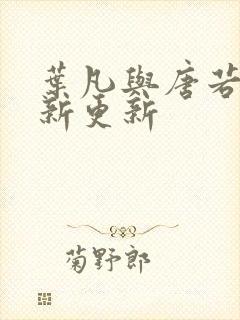 葉凡與唐若
新更新
菊野郎